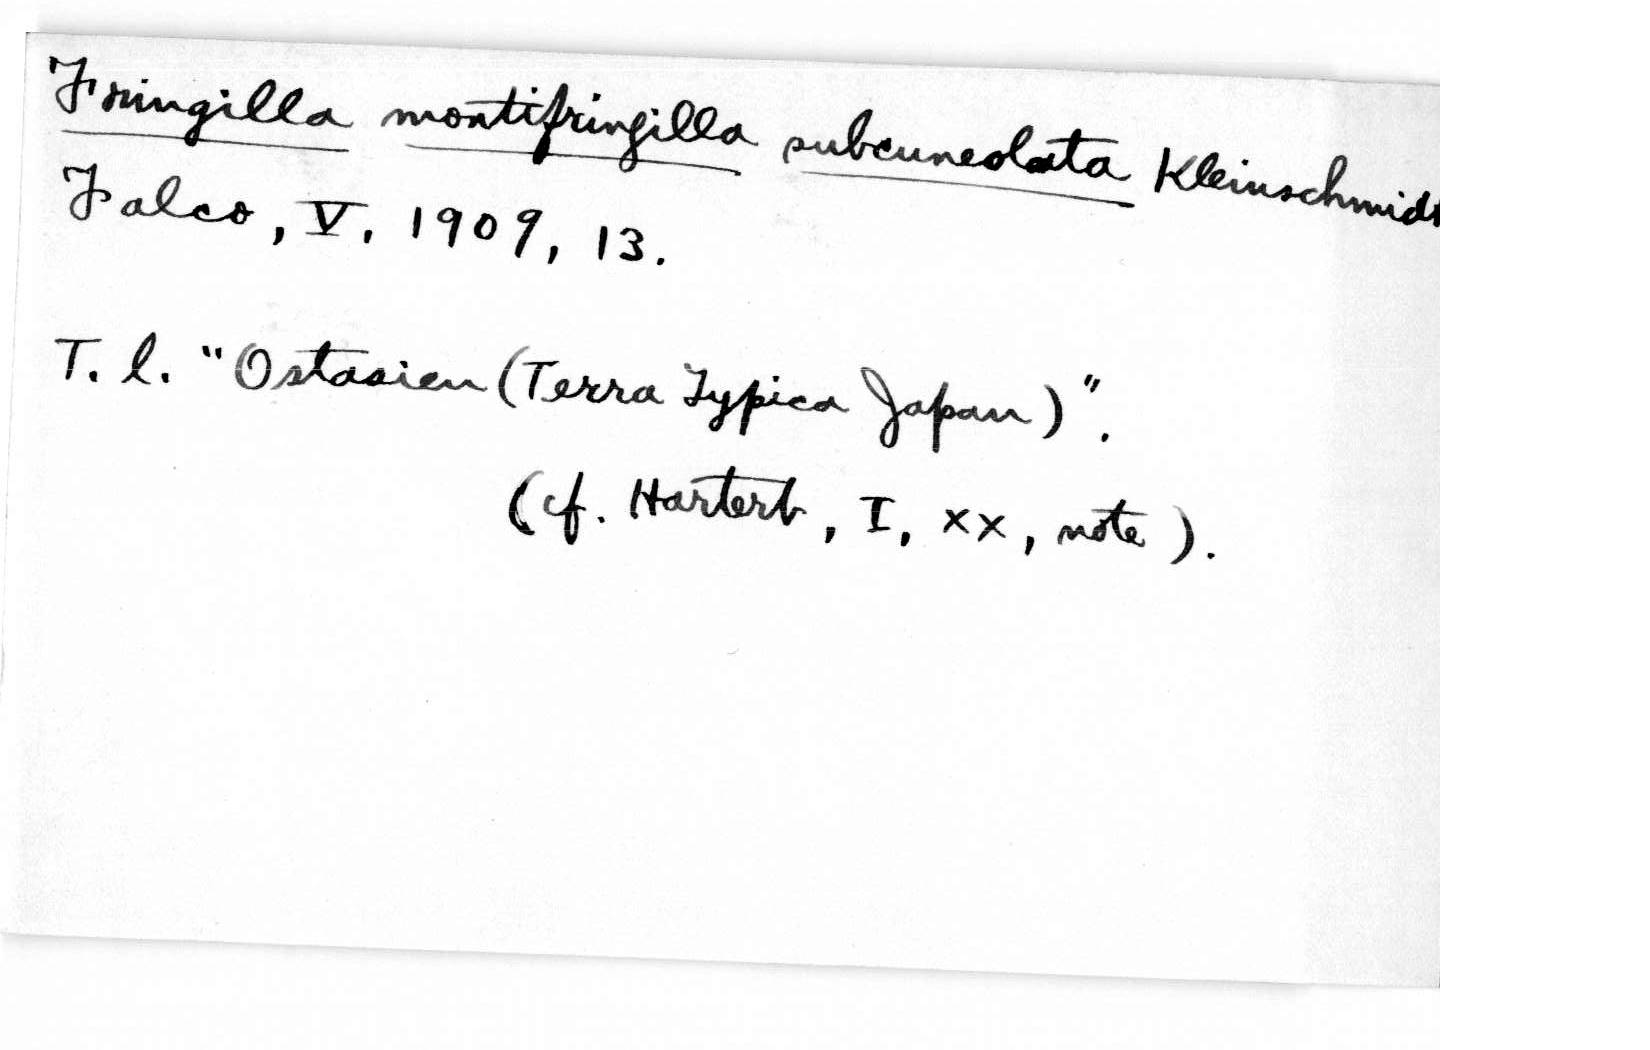 Fringilla montifringilla subcuneolata Kleinschmidt
Falco, V, 1909, 13.
T. l. "Ostasien (Terra Typica Japan)".
(cf. Hartert, I, xx, note).